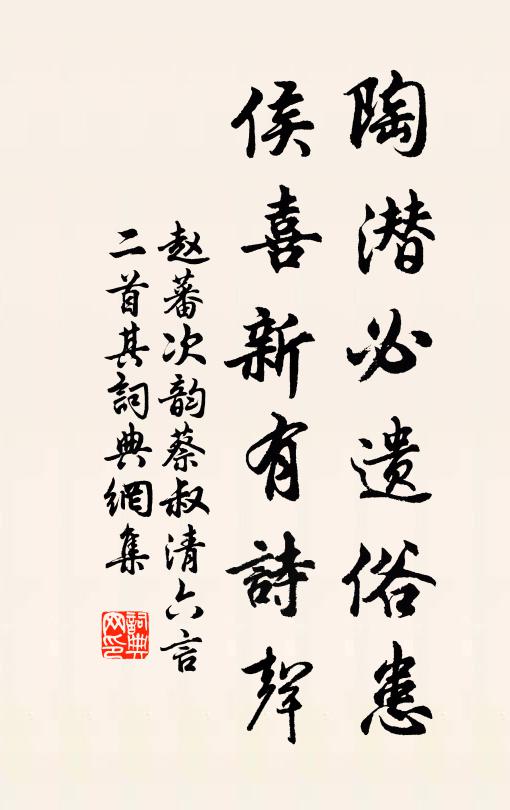 陶潜必遗俗患
侯喜新有詩聲
赵蕃次韵蔡叔清六言
二首其詞典網集
詞典网印